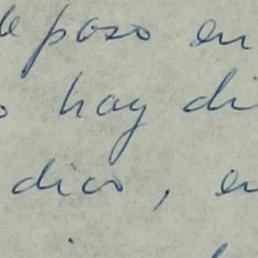 de paso en
o hay di
dico, en